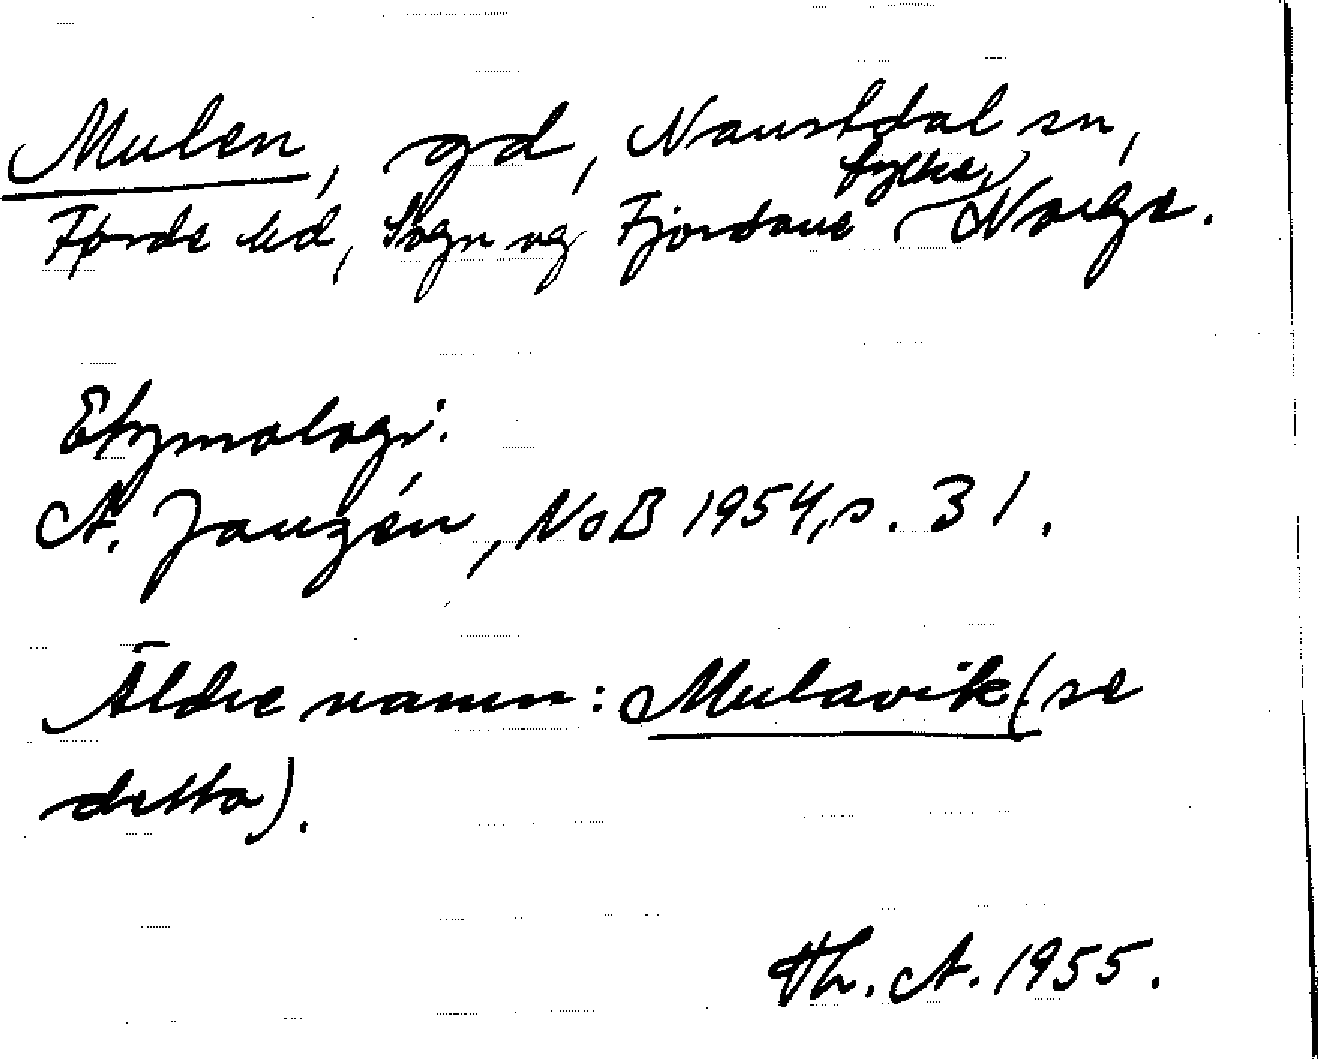 Mulen, gd, Naustdal sn,
Førde hd, Sogn og Fjordane fylke, Norge.
Etymologi:
A. Janzén, NoB 1954, s. 31.
Äldre namn: Mulavik (se
detta).
Th. A. 1955.